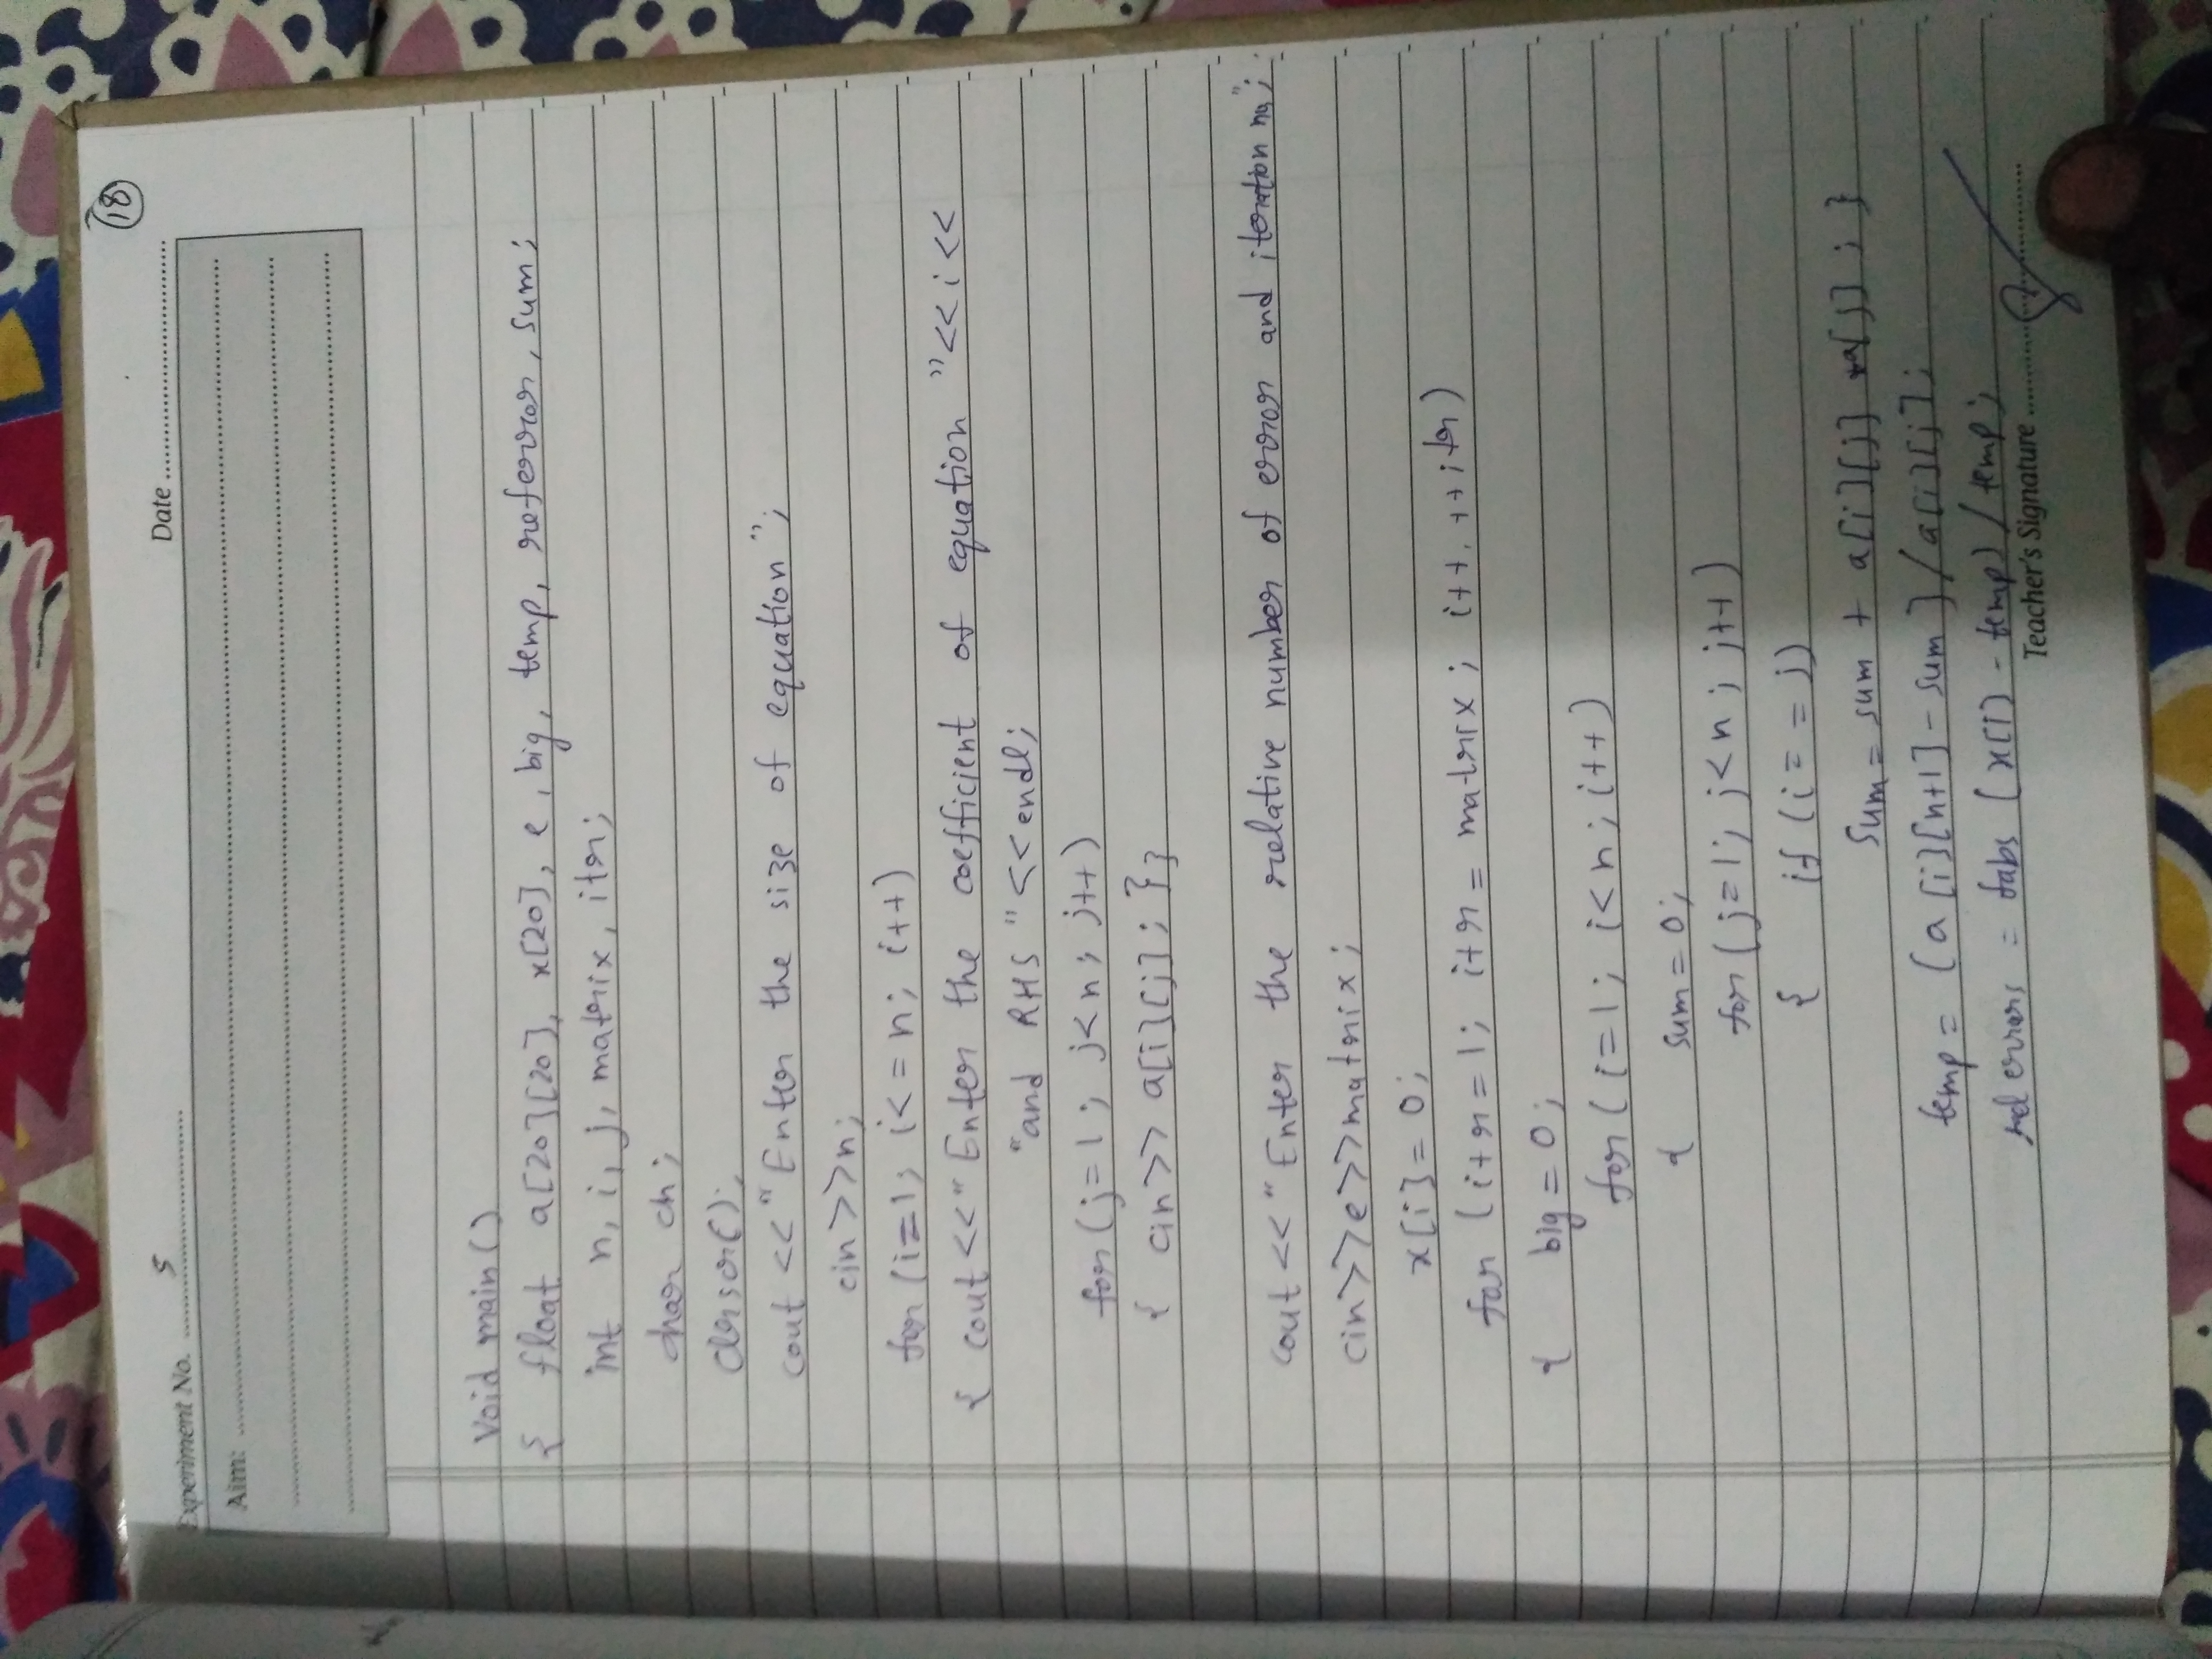 18
Experiment No. 5 Date
Aim:
Void main()
{ float a[20][20], x[20], e, big, temp, referror, sum;
int n, i, j, matrix, itr;
char ch;
clrscr();
cout <<"Enter the size of equation";
cin>>n;
for (i=1; i<=n; i++)
{ cout <<"Enter the coefficient of equation "<< i <<
"and RHS "<<endl;
for (j=1; j<n; j++)
{ cin>> a[i][j]; }}
cout <<"Enter the relative number of error and iteration no";
cin>>e>>matrix;
x[i] = 0;
for (itr=1; itr = matrix; i++, ++itr)
{ big = 0;
for (i=1; i<n; i++)
{ sum = 0;
for (j=1; j<n; j++)
{ if (i==j)
Sum = sum + a[i][j] [j]; }
temp = [a[i][n+1] - sum]/a[i][j];
rel errors = fabs (x[i) - temp) / temp;
Teacher's Signature